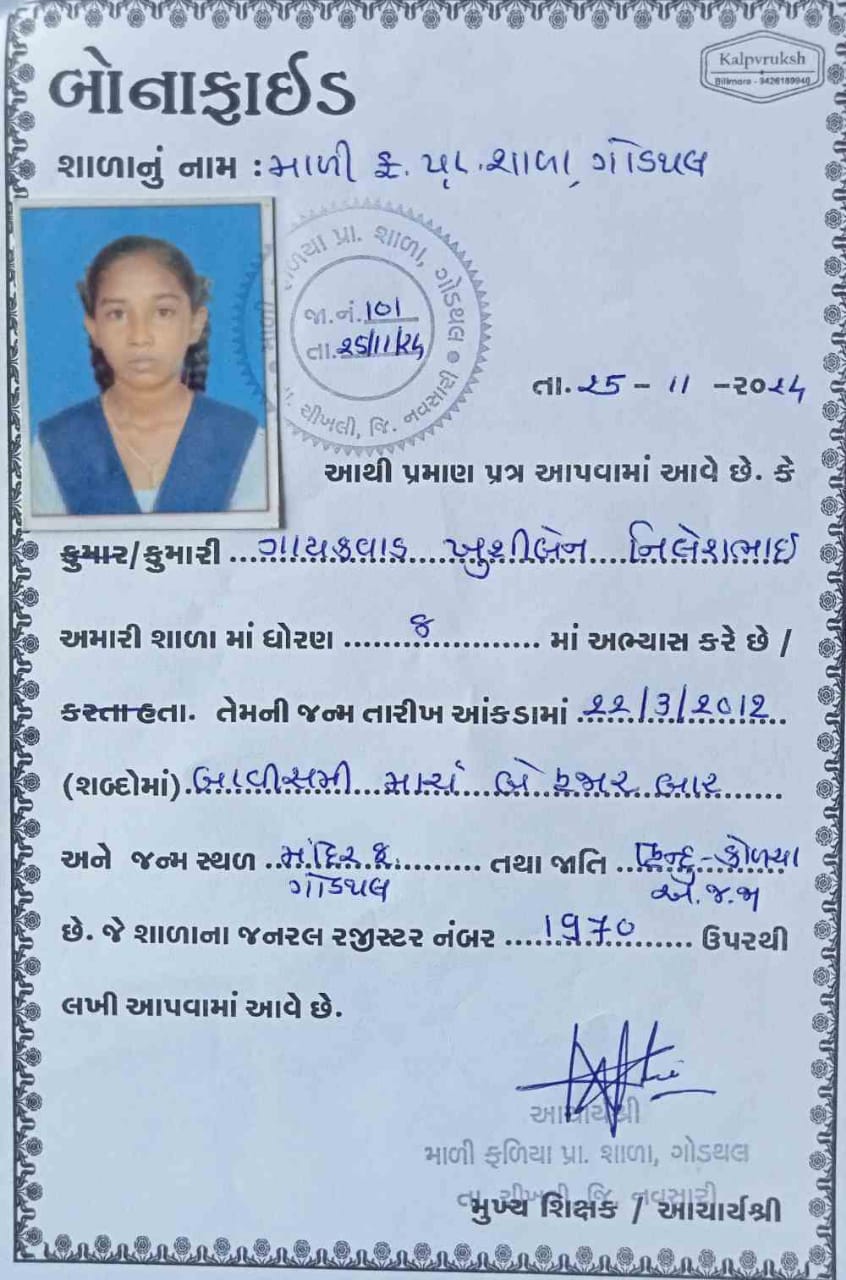 Kalpvruksh
Bilimora - 9426189940
બોનાફાઈડ
શાળાનું નામ : માળી ફ. પ્રા. શાળા, ગોડથલ
ળિયા પ્રા. શાળા, ગોડથલ
જા.નં. 101
તા. ૨૫/11/૨૪
ચીખલી, જિ. નવસારી
તા. ૨૫ - 11 - ૨૦૨૪
આથી પ્રમાણ પત્ર આપવામાં આવે છે. કે
કુમાર/કુમારી ...ગાયકવાડ....ખુશીબેન....નિલેશભાઈ
અમારી શાળા માં ધોરણ ........૮............ માં અભ્યાસ કરે છે /
કરતા હતા. તેમની જન્મ તારીખ આંકડામાં ..૨૨/3/૨૦1૨..
(શબ્દોમાં) .બાવીસમી...માર્ચ...બે હજાર બાર.......
અને જન્મ સ્થળ ..મંદિર ફ............ તથા જાતિ ..હિન્દુ-કોળચા
ગોડથલ
અ.જ.જા
છે. જે શાળાના જનરલ રજીસ્ટર નંબર .....1970........ ઉપરથી
લખી આપવામાં આવે છે.
આચાર્યશ્રી
માળી ફળિયા પ્રા. શાળા, ગોડથલ
તા. ચીખલી, જિ. નવસારી
મુખ્ય શિક્ષક / આચાર્યશ્રી